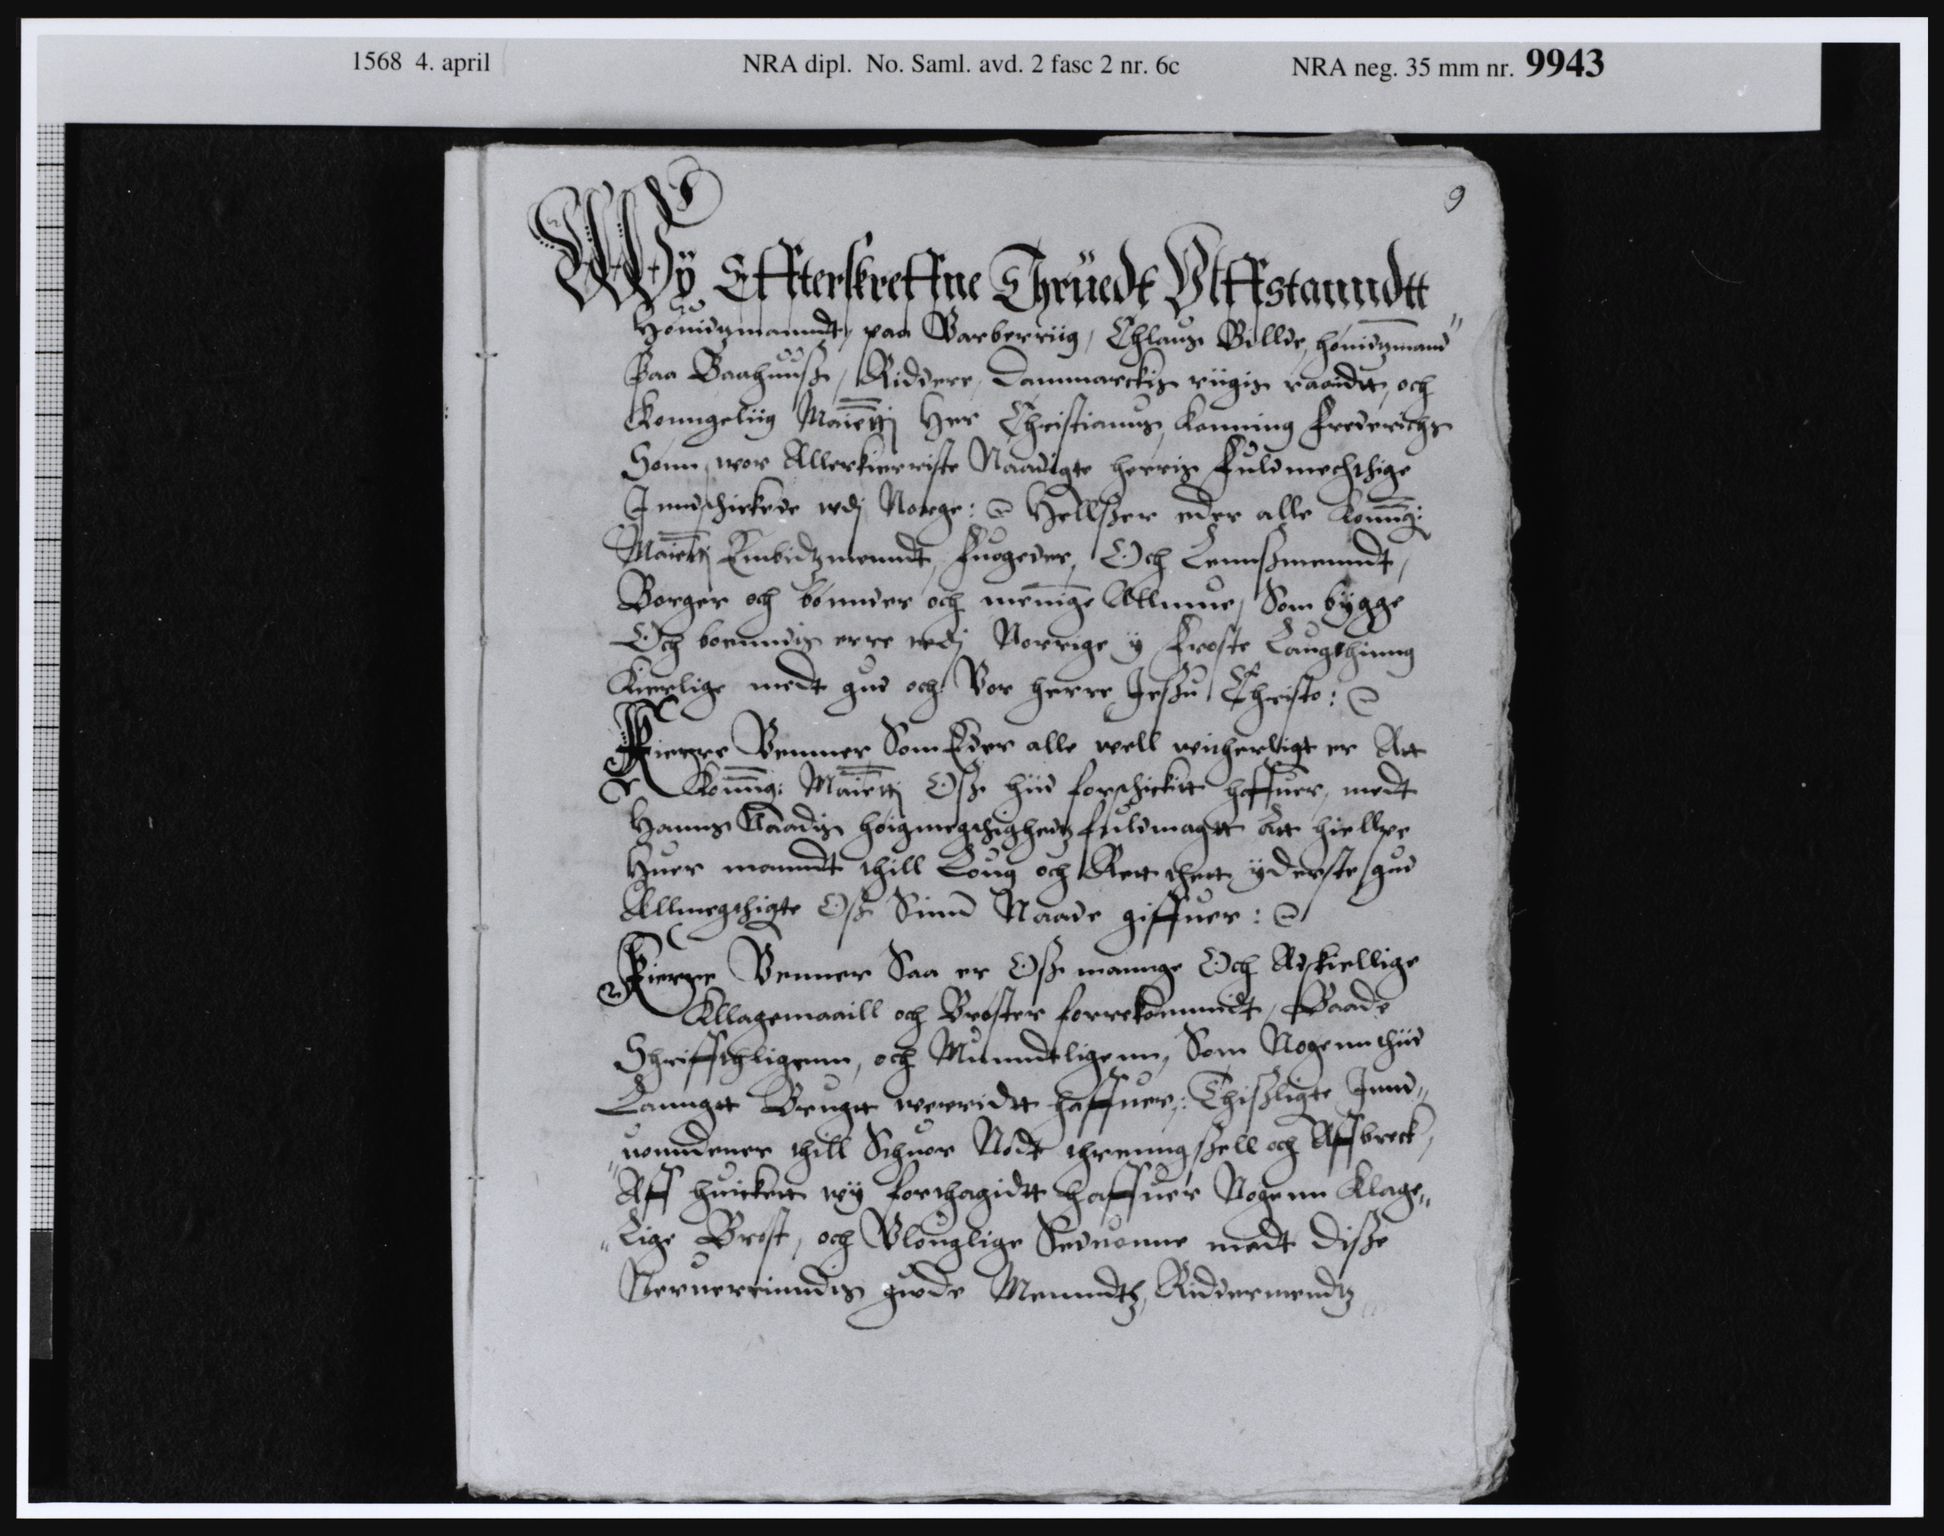 1568 4. april NRA dipl. No. Saml. avd. 2 fasc 2 nr. 6c NRA neg. 35 mm nr. 9943
9
Wÿ Effterskreffne Thrüedt Vlffstanndtt
Höuidzmanndt, paa Varberriig, Chlaus Billde, höuidzmand
Paa Baahuuß, Riddere, Danmarckis riigis raaidtt, och
Konngeliig Maietj Her Christianus, Konning Frederichs
Sönn, wor Allerkierriste Naadigte herris Fuldmechthige
Inndschickede wdj Norge: Hellßer eder alle Konng:
Maietj Embidzmenndt, Fuogeder, Och Lennßmenndt,
Borger och bönnder och mennige Allmue, Som bÿgge
Och boenndis erre wdj Norrige ÿ Froste Laugthinng
Kierlige medt gud och Vor herre Jeßu Christo:
Kierre Venner Som Eder alle well witherligt er Att
Konng: Maietj Oß hiid forschickitt haffuer, medt
Hanns Naadis höigmegthighedz fuldmagtt Att hiellpe
Huer manndt thill Loug och Rett thett ÿderste gud
Allmegthigte Oß Sinn Naade giffuer:
Kierre Venner Saa er Oß mannge Och Adskiellige
Kllagemaaill och Bröster forrekommidt, Baade
Schriffthligenn, och Munndtligenn, Som Nogenn thiid
Lanngtt Brugtt werridtt haffuer: Thißligte Innd„
„uonndener thill Schuor Nödt threnngßell och Affbreck,
Aff huicket wÿ forthagidtt haffuer Nogenn Klage„
„Lige Bröst, och Vlouglige Seduonne medt diße
Neruerrinndis gode Menndtz, Riddermendtz